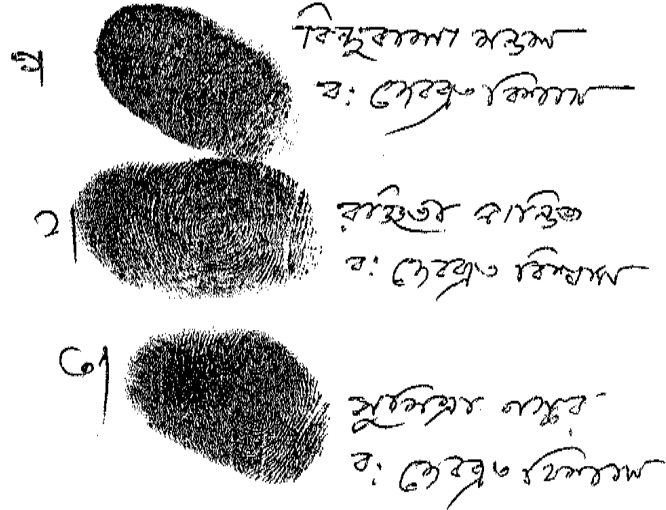 ১।
বিন্দুবালা মন্ডল
ব: দেবব্রত বিশ্বাস
২।
রঞ্জিতা পন্ডিত
ব: দেবব্রত বিশ্বাস
৩।
সুমিত্রা নস্কর
ব: দেবব্রত বিশ্বাস